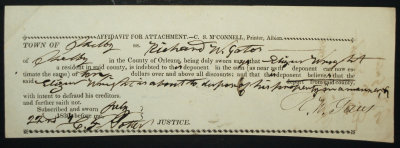 AFFIDAVIT FOR ATTACHMENT.—C. S. McCONNELL, Printer, Albion.
TOWN OF Shelby ss. Richard W. Gates
of Shelby in the County of Orleans, being duly sworn says
a resident in said county, is indebted to deponent in the sum (as near as deponent can now es-
timate the same) of ten dollars over and above all discounts; and that deponent believes that the
said Wright is about to dispose of his property in a manner
with intent to defraud his creditors.
and further saith not.
Subscribed and sworn July
22nd 18 before me,
JUSTICE.